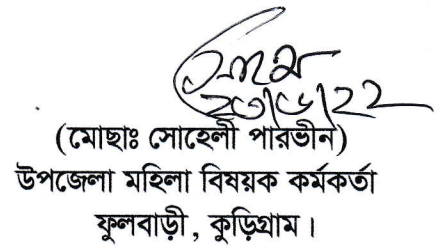 (মোছাঃ সোহেলী পারভীন)
উপজেলা মহিলা বিষয়ক কর্মকর্তা
ফুলবাড়ী, কুড়িগ্রাম।